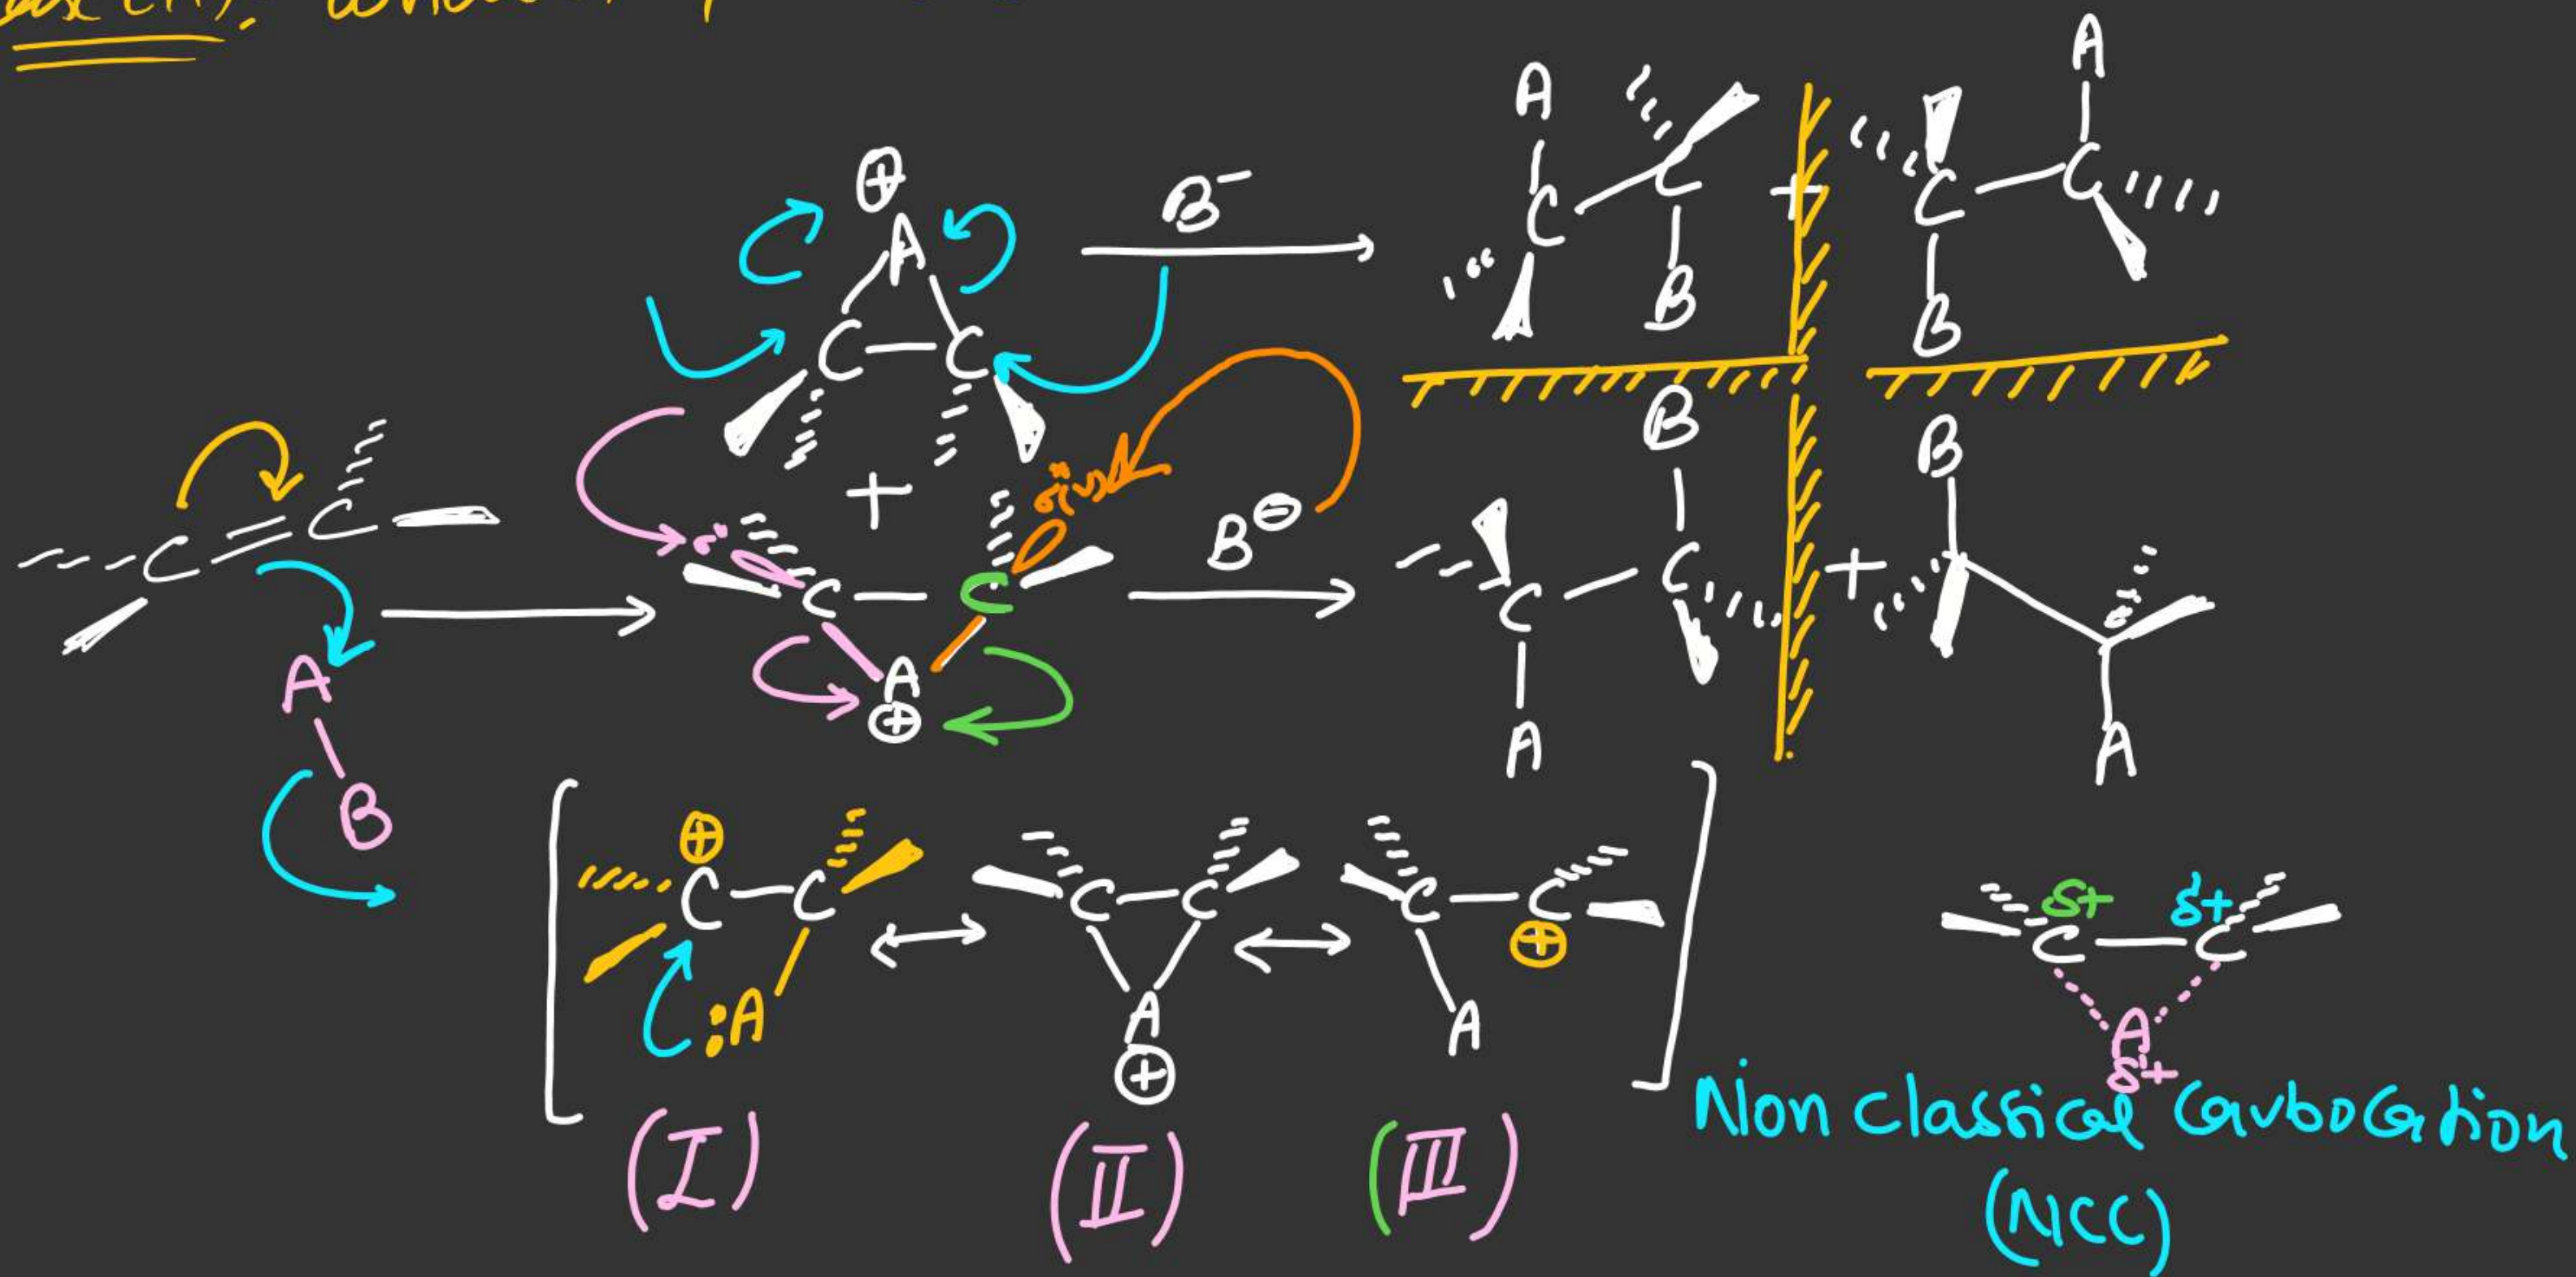 ⊕
A
C — C
+
B⁻
A
C — C
B
+
A
C — C
B
C = C
A
B
σ*
C — C
σ*
A
⊕
B⊖
B
C — C
A
+
B
A
⊕
C — C
:A
↔
C — C
A
⊕
↔
C — C
⊕
A
(I)
(II)
(III)
δ+ δ+
C — C
A
δ+
Non classical Carbocation
(NCC)